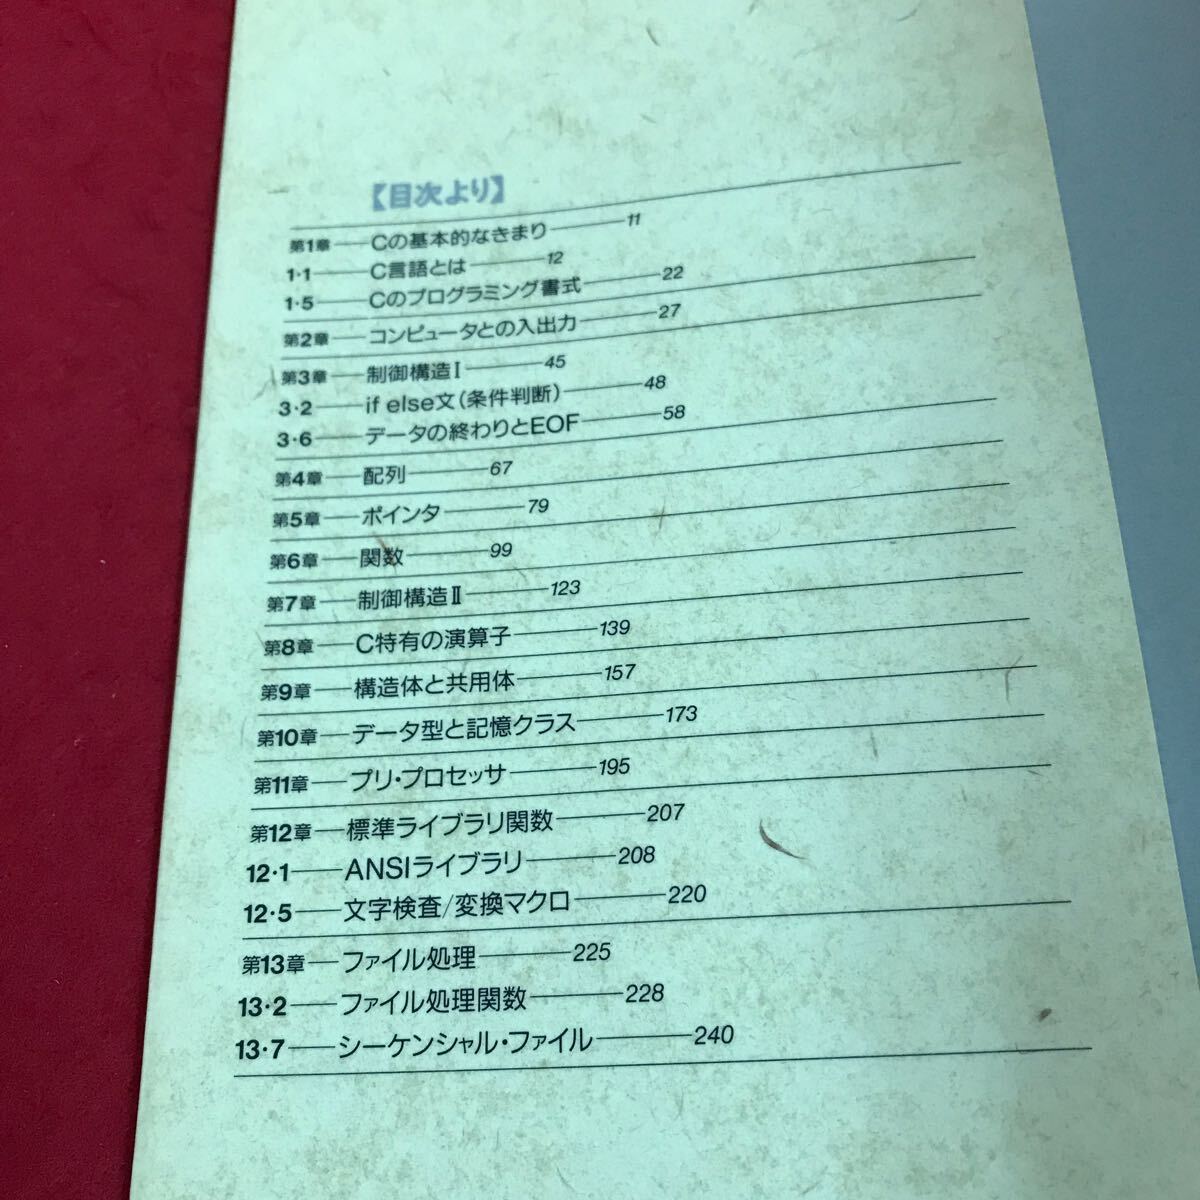 【目次より】
第1章——Cの基本的なきまり——11
1・1——C言語とは——12
1・5——Cのプログラミング書式——22
第2章——コンピュータとの入出力——27
第3章——制御構造Ⅰ——45
3・2——if else文(条件判断)——48
3・6——データの終わりとEOF——58
第4章——配列——67
第5章——ポインタ——79
第6章——関数——99
第7章——制御構造Ⅱ——123
第8章——C特有の演算子——139
第9章——構造体と共用体——157
第10章——データ型と記憶クラス——173
第11章——プリ・プロセッサ——195
第12章——標準ライブラリ関数——207
12・1——ANSIライブラリ——208
12・5——文字検査/変換マクロ——220
第13章——ファイル処理——225
13・2——ファイル処理関数——228
13・7——シーケンシャル・ファイル——240